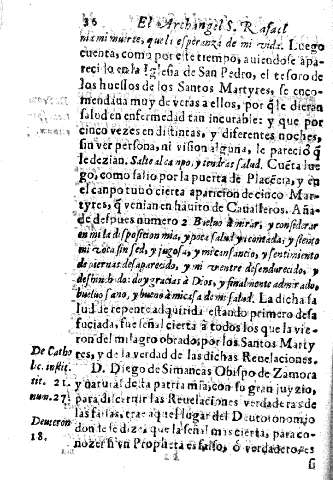 36 El Archangel S. Rafael
mi muerte, que la esperança de mi vida. Luego
cuenta, como por este tiempo, auiendose apa-
recido en la Iglesia de San Pedro, el tesoro de
los huessos de los Santos Martyres, se enco-
mendaua muy de veras a ellos, por q̃ le dieran
salud en enfermedad tan incurable: y que por
cinco vezes en distintas, y diferentes noches,
sin ver persona, ni vision alguna, le pareciò q̃
le dezian. Salte al campo, y tendras salud. Cuẽta lue
go, como salio por la puerta de Placẽcia, y en
el canpo tubò cierta aparicion de cinco Mar-
tyres, q̃ venian en hauito de Caualleros. Aña-
de despues numero 2 Bueluo à mirar, y considerar
en mi la disposicion mia, y poca salud y contada; y siento
mi voca sin sed, y jugosa, y mi cansancio, y sentimiento
de piernas desaparecido, y mi ventre desendurecido, y
deshinchado: doy gracias à Dios, y finalmente admirado,
bueluo sano, y bueno à mi casa de mi salud. La dicha sa
lud de repente adquirida estando primero desa
fuciada, fue señal cierta à todos los que la vie-
ron del milagro obrados por los Santos Marty
res, y de la verdad de las dichas Reuelaciones.
D. Diego de Simancas Obispo de Zamora
y natural de la patria mia, con su gran juyzio,
para discernir las Reuelaciones verdaderas de
las falsas, trae aquel lugar del Deutoronomio
donde se dize que la señal mas cierta, para co-
nozer si vn Propheta es falso, ò verdadero, es
si
De Catho
lic. instit.
tit. 21.
num. 27.
Deuteron
18.